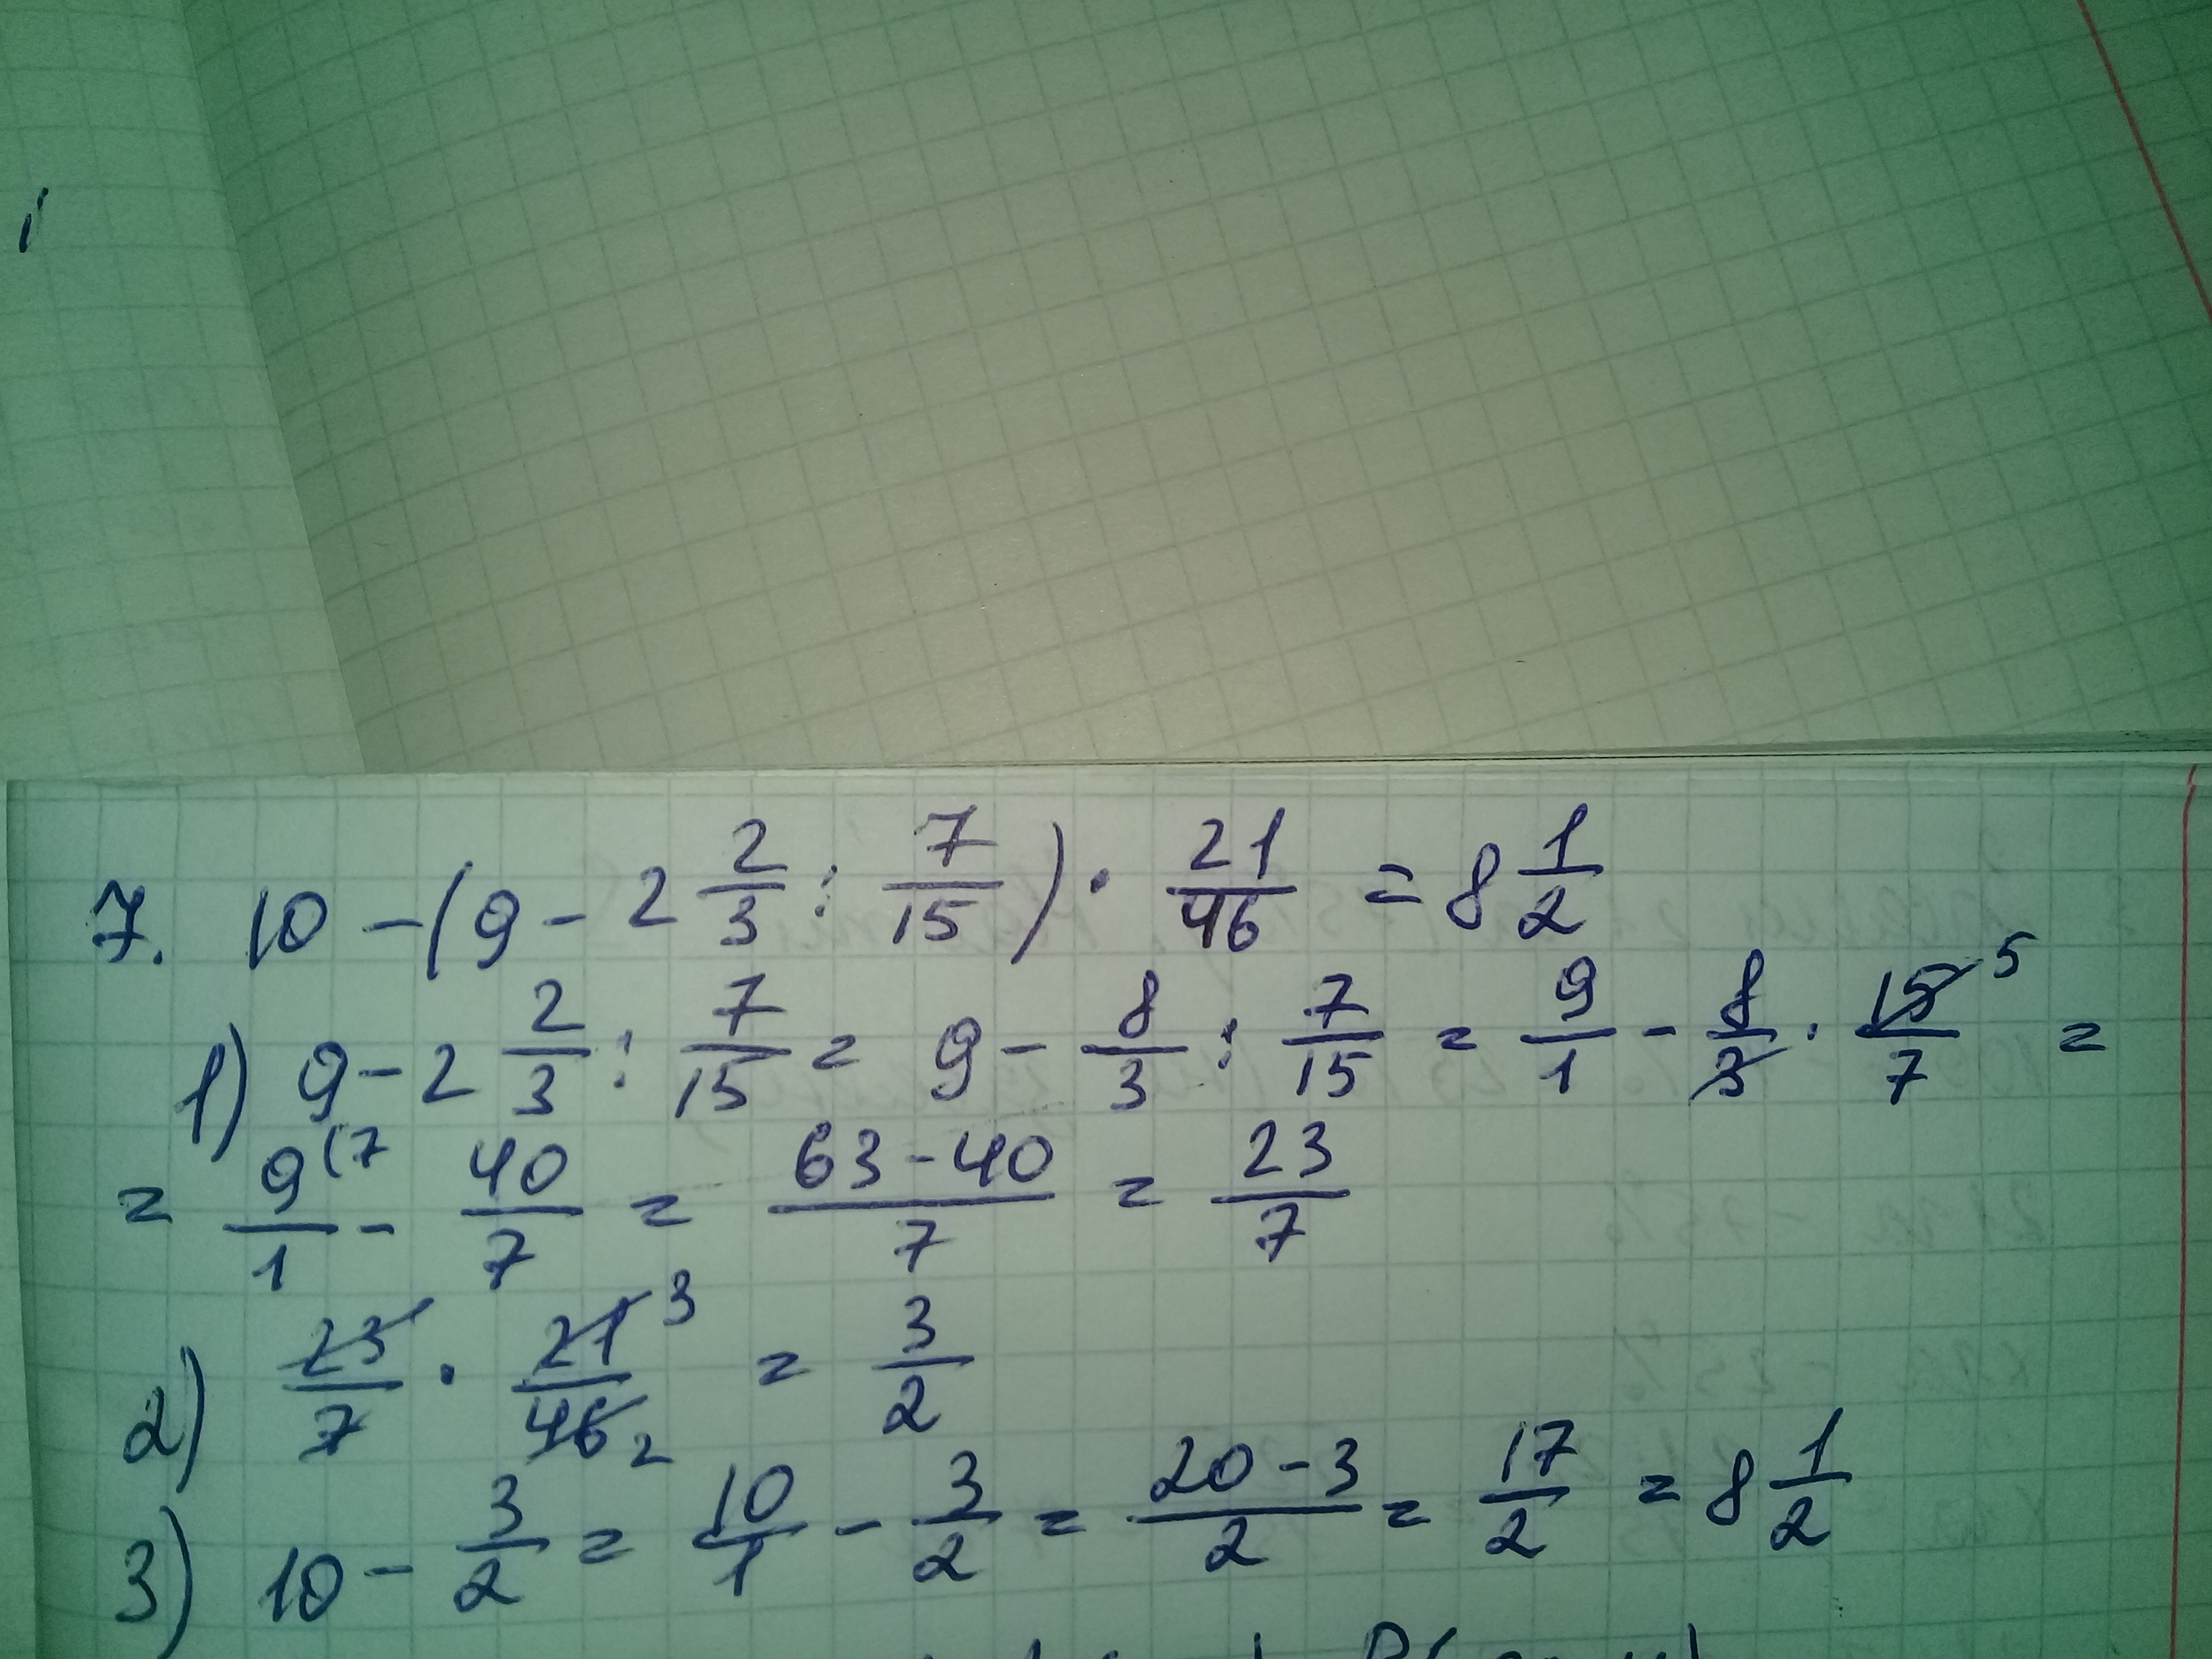 7. 10 - (9 - 2 2/3 : 7/15) · 21/46 = 8 1/2
1) 9 - 2 2/3 : 7/15 = 9 - 8/3 : 7/15 = 9/1 - 8/3 · 15/7 5 =
= 9/1 (7 - 40/7 = 63-40/7 = 23/7
2) 23/7 · 21/46 3 2 = 3/2
3) 10 - 3/2 = 10/1 - 3/2 = 20-3/2 = 17/2 = 8 1/2